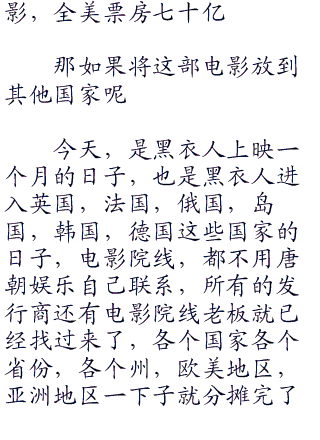 影，全美票房七十亿
那如果将这部电影放到
其他国家呢
今天，是黑衣人上映一
个月的日子，也是黑衣人进
入英国，法国，俄国，岛
国，韩国，德国这些国家的
日子，电影院线，都不用唐
朝娱乐自己联系，所有的发
行商还有电影院线老板就已
经找过来了，各个国家各个
省份，各个州，欧美地区，
亚洲地区一下子就分摊完了